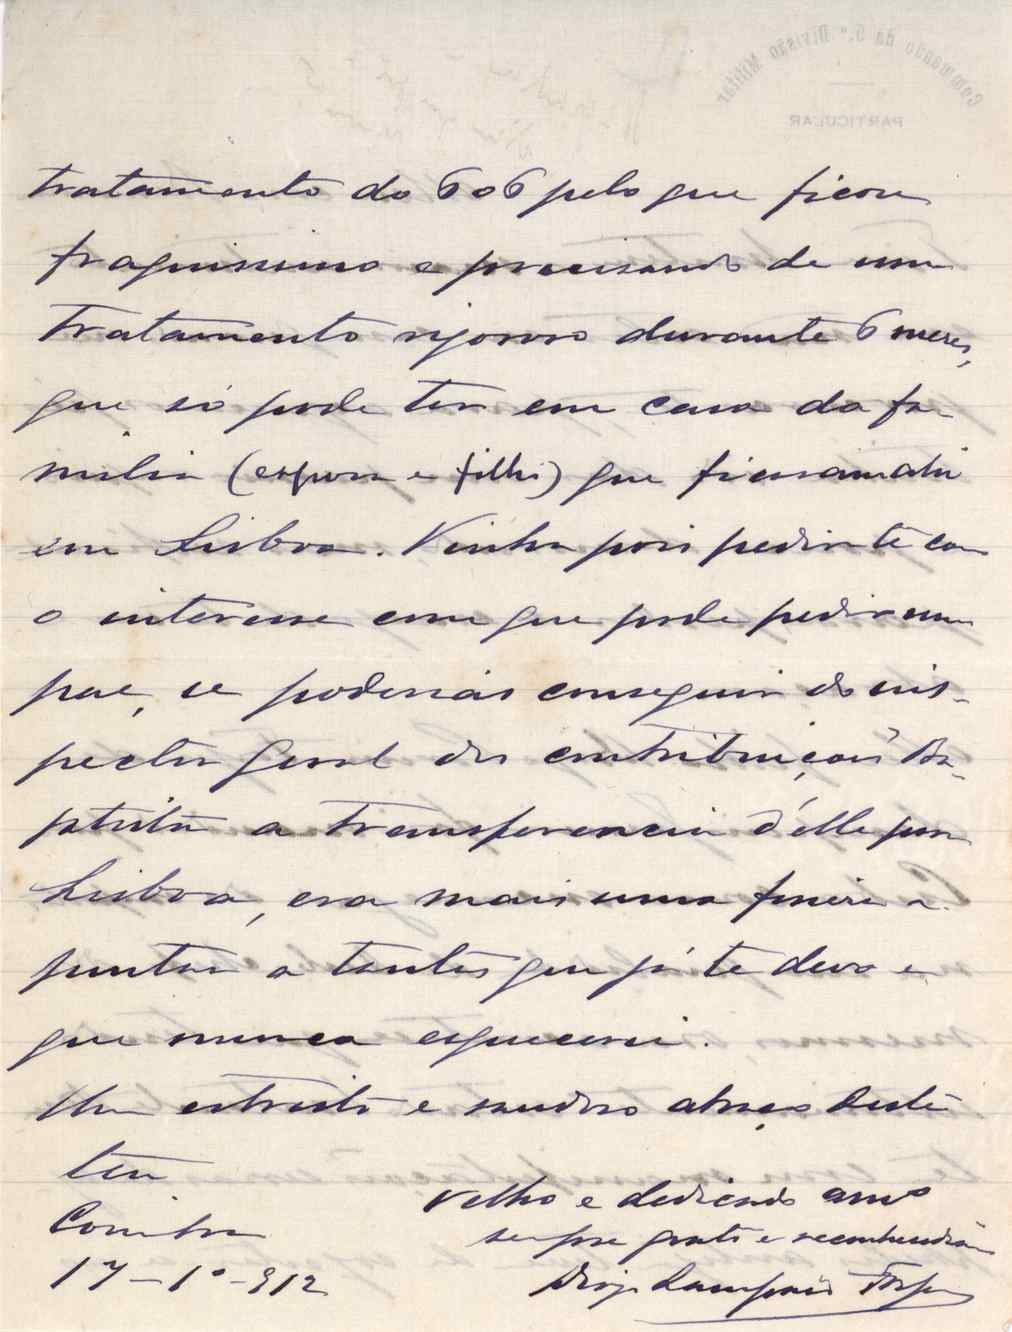 Commando da 5.ª Divisão Militar
PARTICULAR
tratamento do 606 pelo que ficou
fraquissimo e precisando de um
tratamento rigoroso durante 6 mezes,
que só pode ter em casa da fa-
milia (esposa e filhi) que ficaram ahi
em Lisboa. Vinha pois pedir-te com
o interesse com que pode pedir um
pae, se poderias conseguir do ins-
pector geral das contribuições Ba-
ptista a transferencia d'elle para
Lisboa, era mais uma fineza a
juntar a tantas que já te devo e
que nunca esquecerei.
Um estreito e saudoso abraço deste
teu
velho e dedicado amo
Coimbra
sempre grato e
17-1º-912
Sampaio